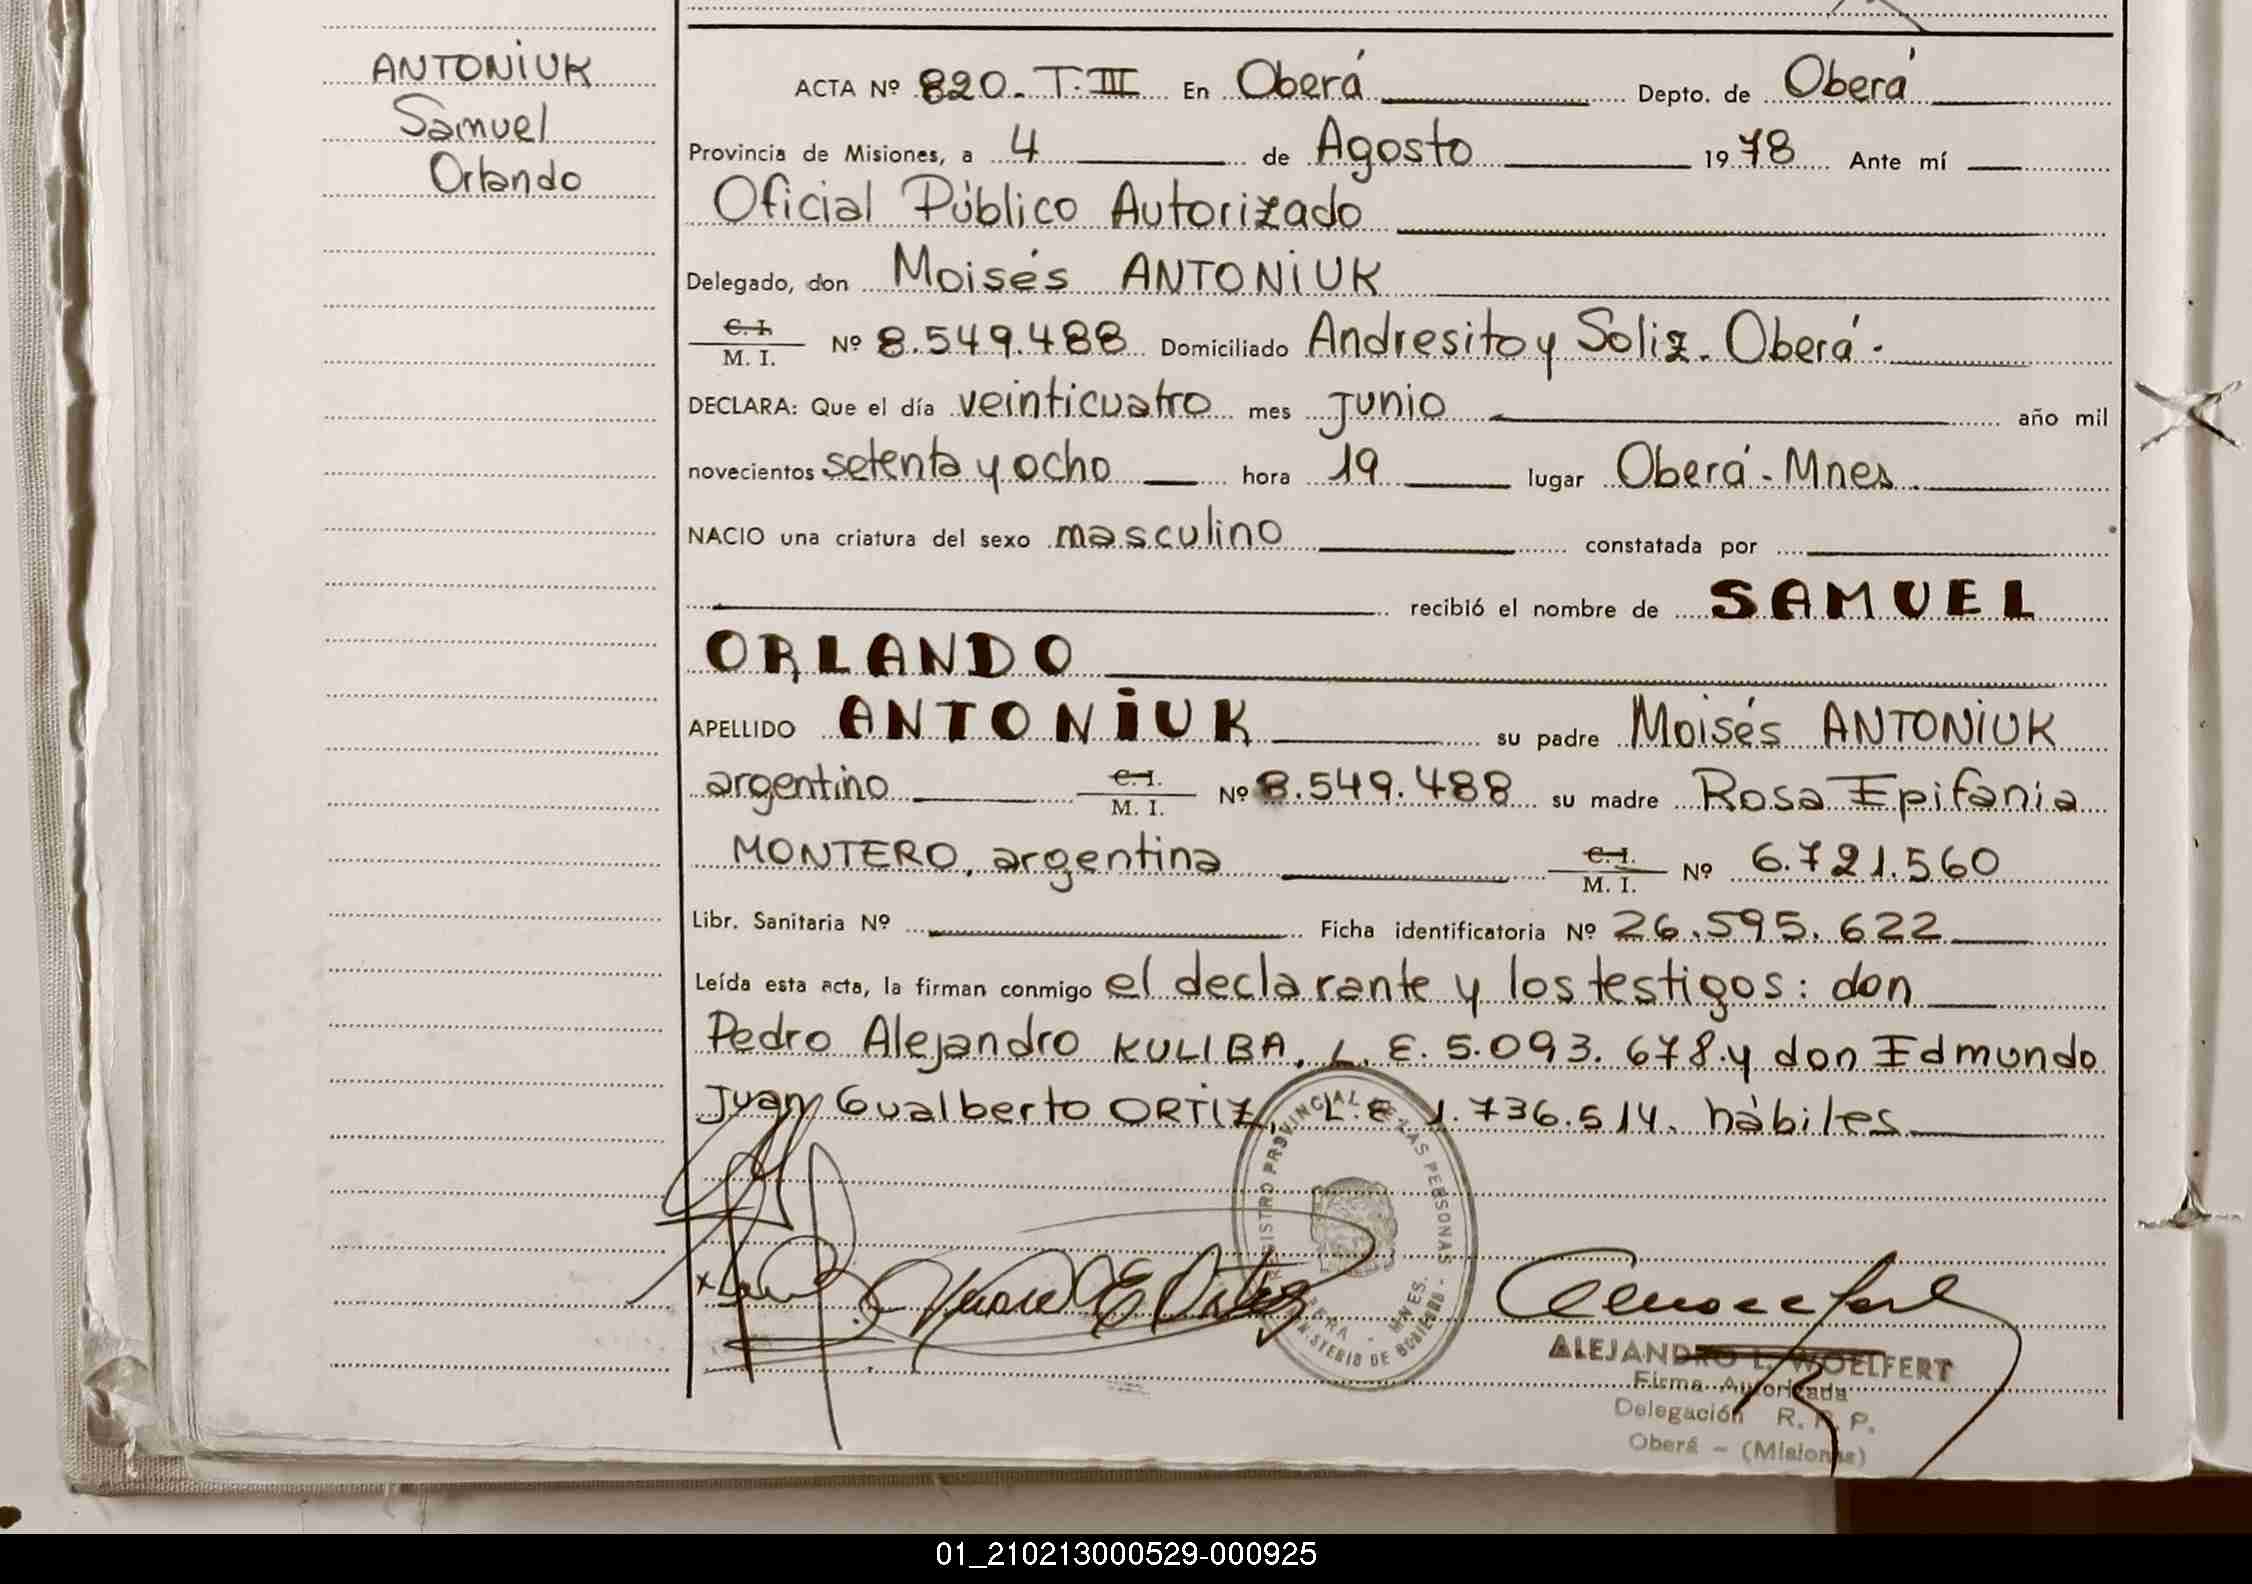 ANTONIUK
Samuel
Orlando
ACTA Nº 820. T. III En Oberá Depto. de Oberá
Provincia de Misiones, a 4 de Agosto 1978 Ante mí
Oficial Público Autorizado
Delegado, don Moisés ANTONIUK
C. I. / M. I. Nº 8.549.488 Domiciliado Andresito y Soliz. Oberá.
DECLARA: Que el día veinticuatro mes junio año mil
novecientos setenta y ocho hora 19 lugar Oberá - Mnes.
NACIO una criatura del sexo masculino constatada por
recibió el nombre de SAMUEL
ORLANDO
APELLIDO ANTONIUK su padre Moisés ANTONIUK
argentino C. I. / M. I. Nº 8.549.488 su madre Rosa Epifania
MONTERO, argentina C. I. / M. I. Nº 6.721.560
Libr. Sanitaria Nº Ficha identificatoria Nº 26.595.622
Leída esta acta, la firman conmigo el declarante y los testigos: don
Pedro Alejandro KULIBA, L. E. 5.093.678. y don Edmundo
Juan Gualberto ORTIZ, L. E 1.736.514. hábiles
REGISTRO PROVINCIAL DE LAS PERSONAS
OBERA - MNES.
MINISTERIO DE GOBIERNO
ALEJANDRO L. WOELFERT
Firma Autorizada
Delegación R. P. P.
Oberá - (Misiones)
01_210213000529-000925